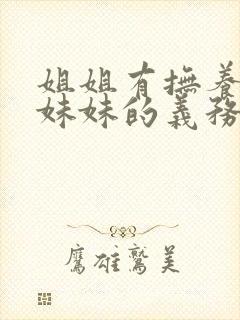 姐姐有撫養
妹妹的義務
鷹雄鷲美